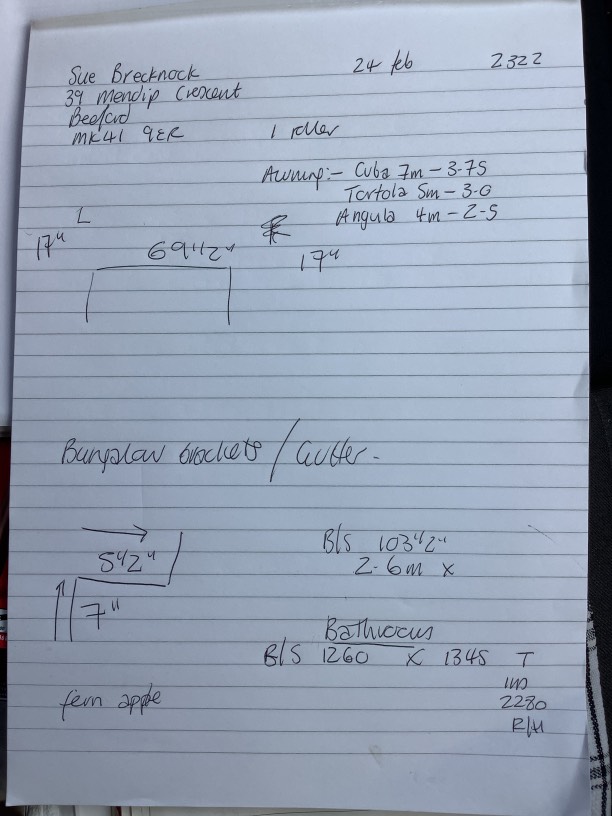 Sue Brecknock 24 feb 2322
39 Mendip Crescent
Bedford
MK41 9ER 1 roller
Awning:- Cuba 7m - 3.75
Tortola 5m - 3.0
Angula 4m - 2.5
L
17" 69 1/2" 17"
Bungalow brackets / Gutter.
5 1/2" B/S 103 1/2"
2.6m x
7"
Bathroom
B/S 1260 x 1345 T
fern apple 2280
R/H